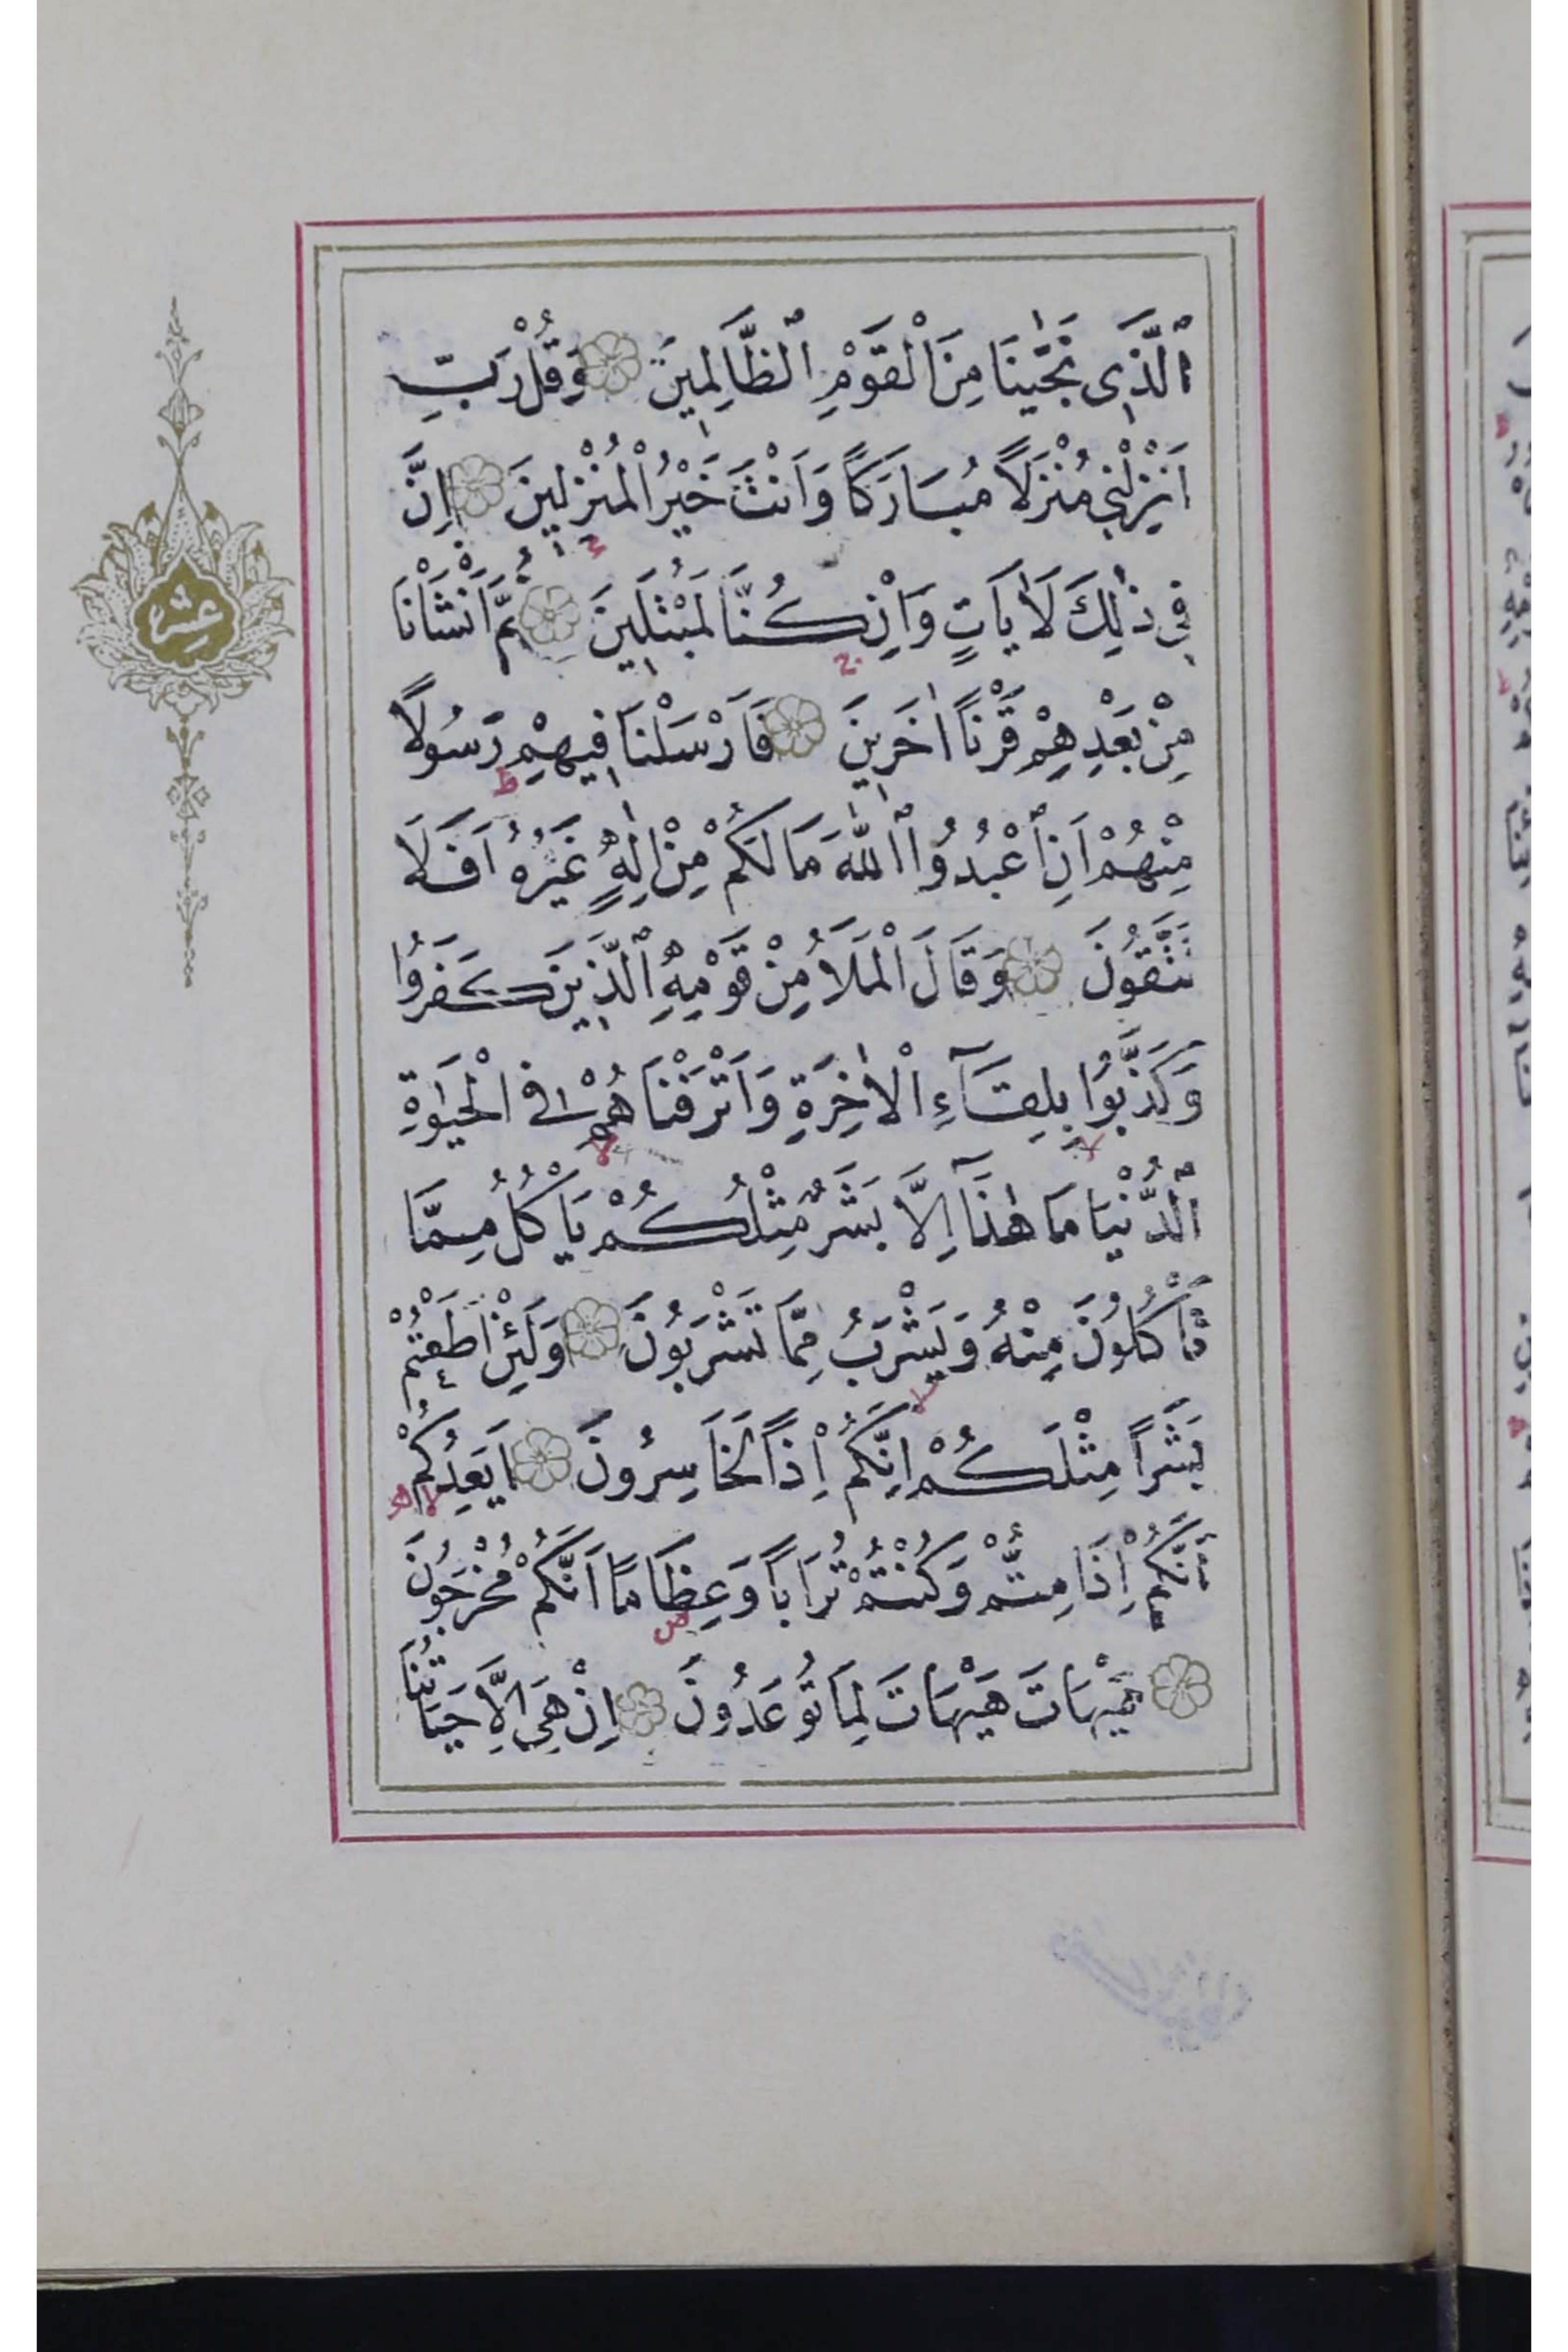 اَلَّذٖى نَجّٰينَا مِنَ الْقَوْمِ الظَّالِمٖينَ وَقُلْ رَبِّ
اَنْزِلْنٖى مُنْزَلاً مُبَارَكاً وَاَنْتَ خَيْرُ الْمُنْزِلٖينَ اِنَّ
فٖى ذٰلِكَ لَاٰيَاتٍ وَاِنْ كُنَّا لَمُبْتَلٖينَ ثُمَّ اَنْشَاْنَا
مِنْ بَعْدِهِمْ قَرْناً اٰخَرٖينَ فَاَرْسَلْنَا فٖيهِمْ رَسُولاً
مِنْهُمْ اَنِ اعْبُدُوا اللّٰهَ مَا لَكُمْ مِنْ اِلٰهٍ غَيْرُهُ اَفَلَا
تَتَّقُونَ وَقَالَ الْمَلَأُ مِنْ قَوْمِهِ الَّذٖينَ كَفَرُوا
وَكَذَّبُوا بِلِقَٓاءِ الْاٰخِرَةِ وَاَتْرَفْنَاهُمْ فِى الْحَيٰوةِ
الدُّنْيَا مَا هٰذَٓا اِلَّا بَشَرٌ مِثْلُكُمْ يَاْكُلُ مِمَّا
تَاْكُلُونَ مِنْهُ وَيَشْرَبُ مِمَّا تَشْرَبُونَ وَلَئِنْ اَطَعْتُمْ
بَشَراً مِثْلَكُمْ اِنَّكُمْ اِذاً لَخَاسِرُونَ اَيَعِدُكُمْ
اَنَّكُمْ اِذَا مِتُّمْ وَكُنْتُمْ تُرَاباً وَعِظَاماً اَنَّكُمْ مُخْرَجُونَ
هَيْهَاتَ هَيْهَاتَ لِمَا تُوعَدُونَ اِنْ هِىَ اِلَّا حَيَاتُنَا
عشر